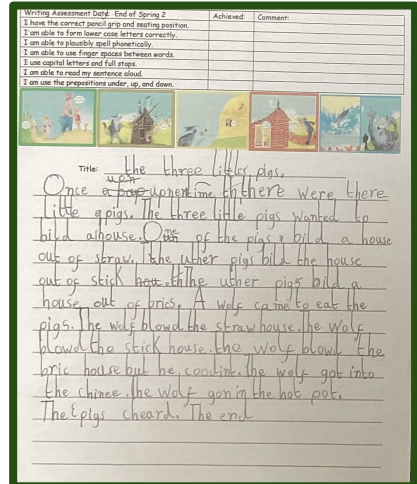 Writing Assessment Date: End of Spring 2 Achieved: Comment:
I have the correct pencil grip and seating position.
I am able to form lower case letters correctly.
I am able to plausibly spell phonetically.
I am able to use finger spaces between words.
I use capital letters and full stops.
I am able to read my sentence aloud.
I am use the prepositions under, up, and down.
Title: the three littles pigs.
upn
Once a upontime, there were there
little pigs. The three little pigs wanted to
bild a house. One of the pigs bild a house
out of straw. the uther pigs bild the house
out of stick. The uther pigs bild a
house out of brics. A wolf came to eat the
pigs. The wolf blowd the straw house. the wolf
blowd the stick house. the wolf blowd the
bric house but he coodint. the wolf got into
the chinee. the wolf gon in the hot pot.
The pigs cheard. The end